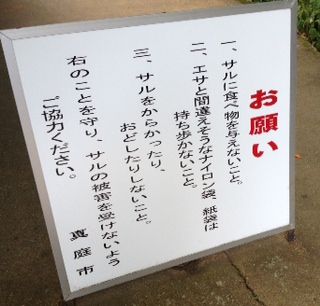 お願い
一、サルに食べ物を与えないこと。
二、エサと間違えそうなナイロン袋、紙袋は
持ち歩かないこと。
三、サルをからかったり、
おどしたりしないこと。
右のことを守り、サルの被害を受けないよう
ご協力ください。
真庭市